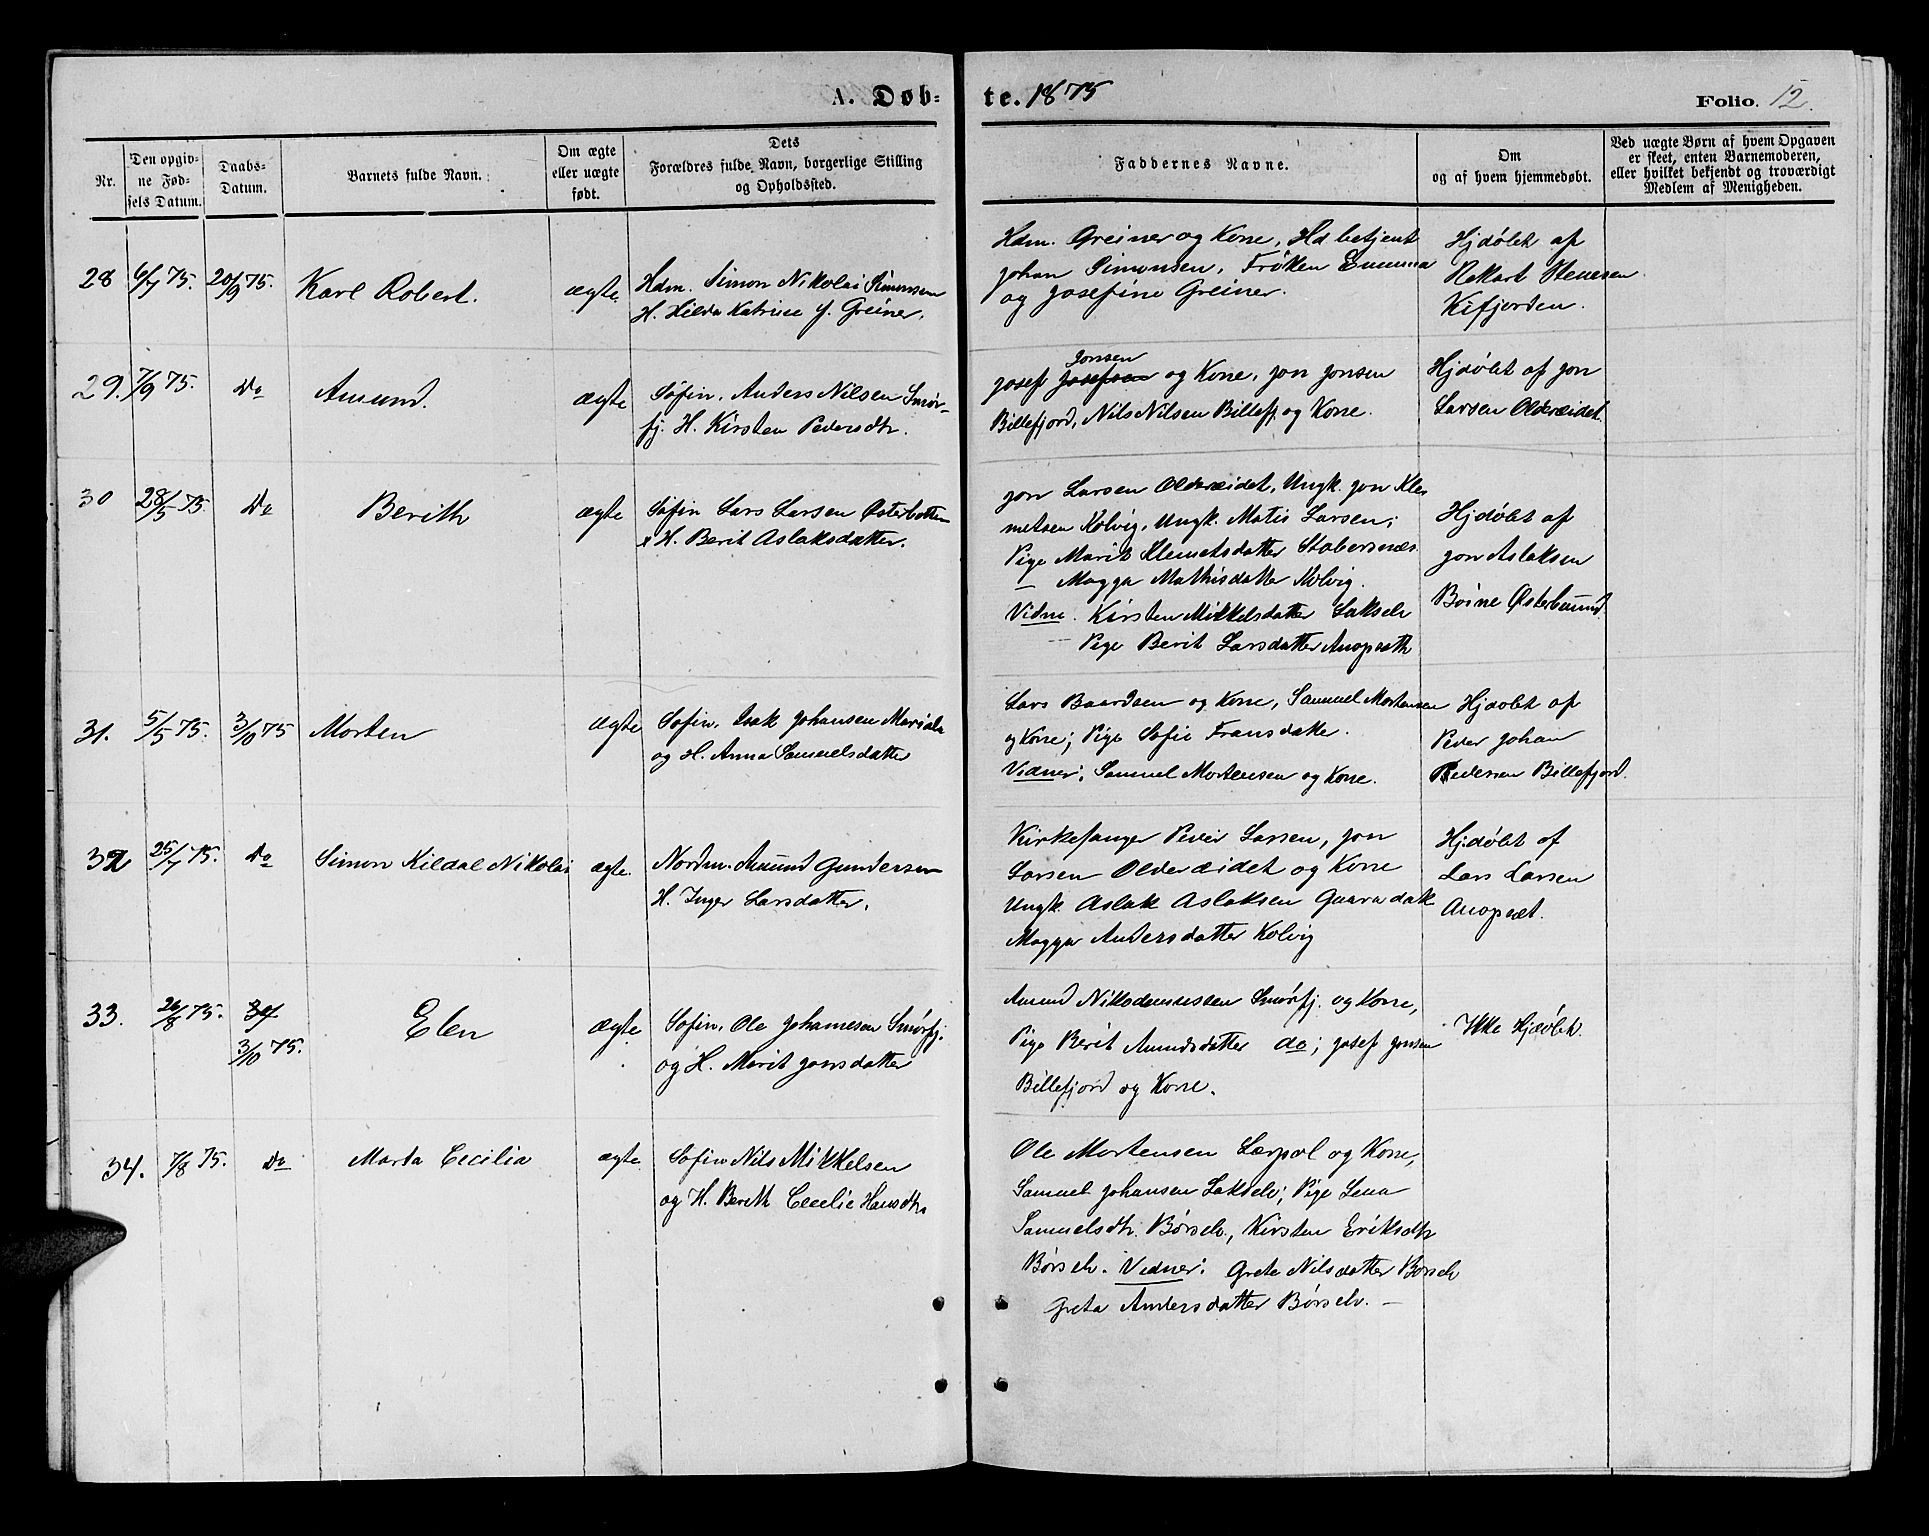 A. Døbte. 1875
Folio. 12.
Nr.
Den opgivne Fødsels Datum.
Daabs-Datum.
Barnets fulde Navn.
Om ægte eller uægte født.
Dets Forældres fulde Navn, borgerlige Stilling og Opholdssted.
Faddernes Navne.
Om og af hvem hjemmedøbt.
Ved uægte Børn af hvem Opgaven er skeet, enten Barnemoderen, eller hvilket bekjendt og troværdigt Medlem af Menigheden.
28 6/7 75. 20/9 75. Karl Robert. ægte.
Hdm. Simon Nikolai Simonsen
H. Hilda Katrine f. Greiner.
Hdm. Greiner og Kone, Hd betjent
Johan Simonsen, Frøken Emma
og Josefine Greiner.
Hjdöbt af
Kifjorden.
29. 7/9 75. Do Amund. ægte
Söfin. Anders Nilsen Smör-
fj. H. Kirsten Pedersdtr.
Jonsen
Josef Josefsen og Kone, Jon Jonsen
Billefjord, Nils Nilsen Billefj og Kone.
Hjdöbt af Jon
Larsen Oldereidet.
30 28/5 75 Do Berith ægte
Söfin Lars Larsen Østerbotten
& H. Berit Aslaksdatter.
Jon Larsen Oldereidet, Ungk. Jon Kle
metsen Kolvig, Ungk. Matis Larsen;
Pige Marit Klemetsdatter Stabersnæs
— Magga Mathisdatter Kolvig.
Vidne. Kirsten Mikkelsdatter Lakselv
Pige Berit Larsdatter
Hjdöbt af
Jon Aslaksen
31. 5/5 75. 3/10 75 Morten ægte
Söfin. Isak Johansen
og H. Anna Samuelsdatter
Lars Baardsen og Kone, Samuel Mortensen
og Kone; Pige Sofie Fransdatter.
Vidner; Samuel Mortensen og Kone.
Hjdöbt af
Peder Johan
Pedersen Billefjord.
32 25/7 75. Do Simon Kildal Nikolai ægte.
Nordm. Amund Gundersen
H. Inger Larsdatter.
Kirkesanger Peder Larsen, Jon
Larsen Oldereidet og Kone
Ungk. Aslak Aslaksen
Magga Andersdatter Kolvig
Hjdöbt af
Lars Larsen
33. 26/8 75. 3/10 75. Elen ægte
Söfin. Ole Johannesen Smörfj.
og H. Marit Jonsdatter
Amund Nikodemussen Smörfj. og Kone,
Pige Berit Amundsdatter do; Josef Jonsen
Billefjord og Kone.
Ikke Hjdöbt.
34. 7/8 75. Do Marta Cecilia ægte.
Söfin Nils Mikkelsen
og H. Berith Cecilie Hansdtr
Ole Mortensen Lærpol og Kone,
Samuel Johansen Lakselv; Pige Lena
Samuelsdtr. Börselv., Kirsten Eriksdtr
Börselv. Vidner: Grete Nilsdatter Börselv
Greta Andersdatter Börselv. —